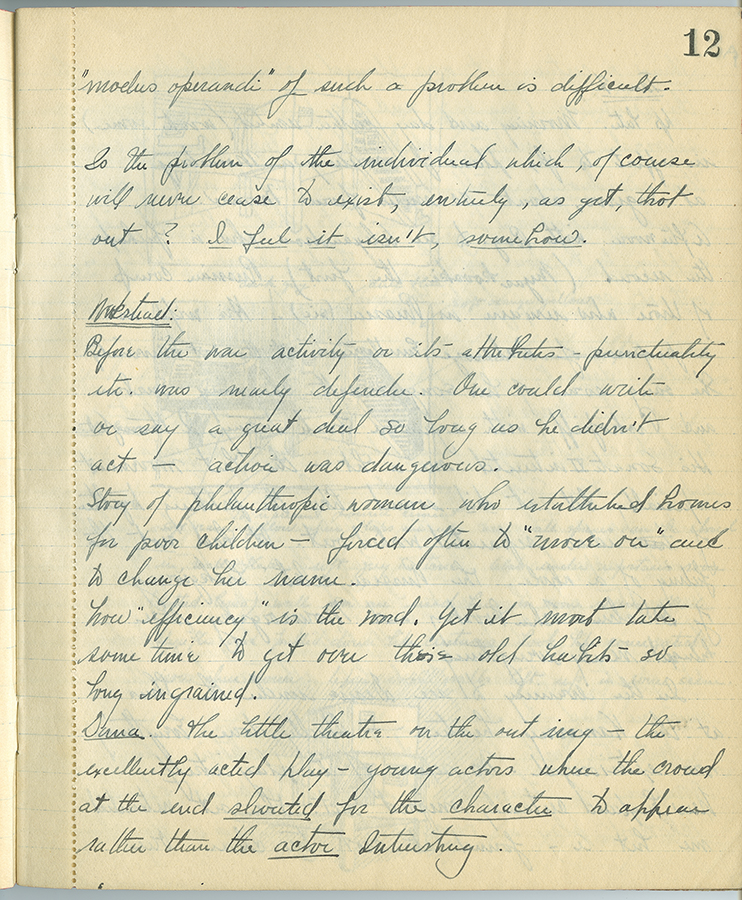 12
"modus operandi" of such a problem is difficult.
Is the problem of the individual which, of course
will never cease to exist, entirely, as yet, thot
out? I feel it isn't, somehow.
Before the war activity or its attributes - punctuality
etc. was merely defender. One could write
or say a great deal so long as he didn't
act — action was dangerous.
Story of philanthropic woman who established homes
for poor children — forced often to "move on" and
to change her name.
Now "efficiency" is the word. Yet it must take
some time to get over those old habits so
long ingrained.
Drama. The little theatre on the out ring - the
excellently acted play - young actors where the crowd
at the end shouted for the character to appear
rather than the actor Interesting.